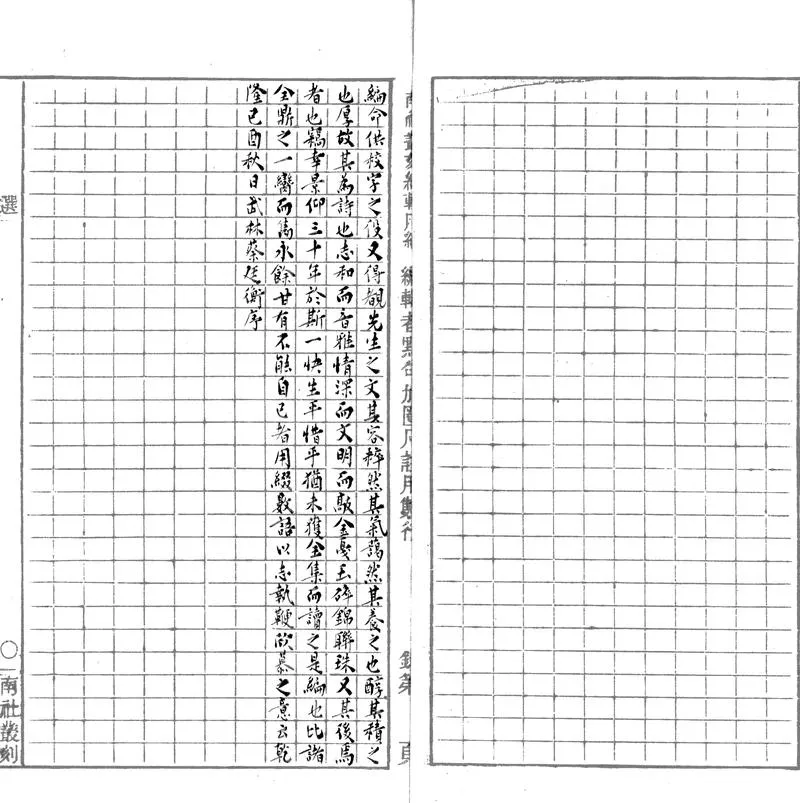 編命供校字之役又得覩先生之文其容粹然其氣藹然其養之也醇其積之
也厚故其為詩也志和而音雅情深而文明而敲金戛玉碎錦聯珠又其後焉
者也竊幸景仰三十年於斯一快生平惜乎猶未獲全集而讀之是編也比諸
全鼎之一臠而雋永餘甘有不能自已者用綴數語以志執鞭欣慕之意云乾
隆己酉秋日武林蔡廷衡序
選
〇
南社叢刻
編輯者點句加圈
用數
第 頁